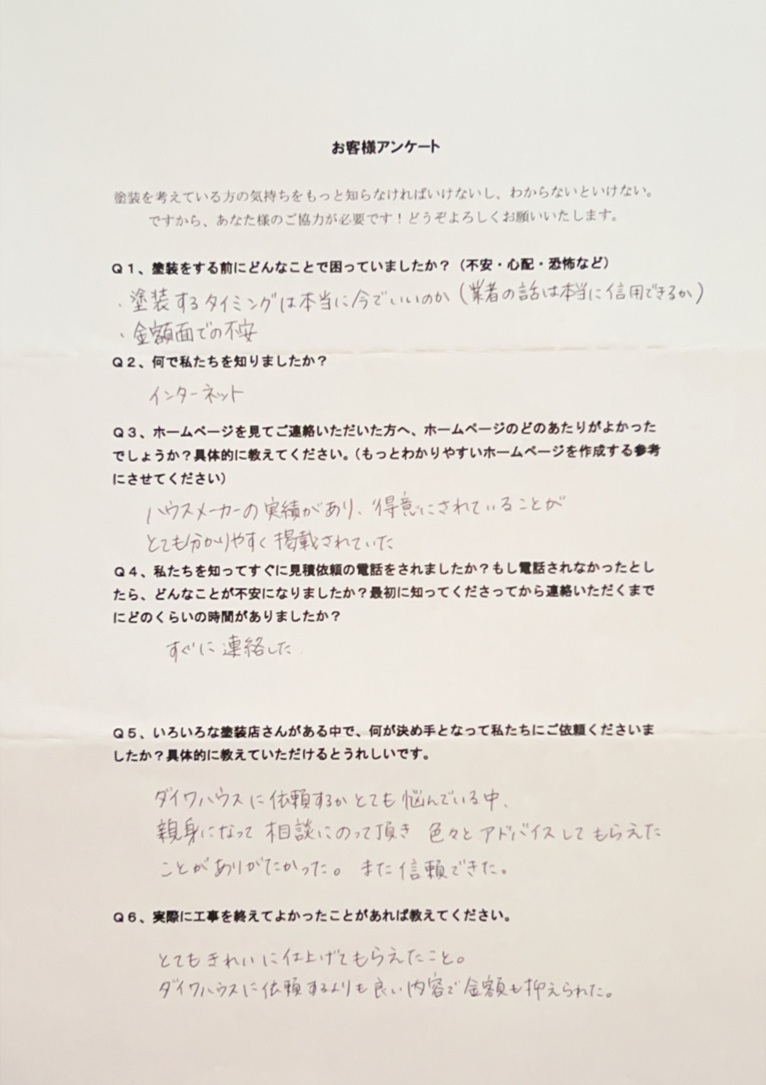 お客様アンケート
塗装を考えている方の気持ちをもっと知らなければいけないし、わからないといけない。
ですから、あなた様のご協力が必要です！どうぞよろしくお願いいたします。
Ｑ１、塗装をする前にどんなことで困っていましたか？（不安・心配・恐怖など）
・塗装するタイミングは本当に今でいいのか（業者の話は本当に信用できるか）
・金額面での不安
Ｑ２、何で私たちを知りましたか？
インターネット
Ｑ３、ホームページを見てご連絡いただいた方へ、ホームページのどのあたりがよかった
でしょうか？具体的に教えてください。（もっとわかりやすいホームページを作成する参考
にさせてください）
ハウスメーカーの実績があり、得意にされていることが
とても分かりやすく掲載されていた
Ｑ４、私たちを知ってすぐに見積依頼の電話をされましたか？もし電話されなかったとし
たら、どんなことが不安になりましたか？最初に知ってくださってから連絡いただくまで
にどのくらいの時間がありましたか？
すぐに連絡した
Ｑ５、いろいろな塗装店さんがある中で、何が決め手となって私たちにご依頼くださいま
したか？具体的に教えていただけるとうれしいです。
ダイワハウスに依頼するかとても悩んでいる中、
親身になって相談にのって頂き 色々とアドバイスしてもらえた
ことがありがたかった。また信頼できた。
Ｑ６、実際に工事を終えてよかったことがあれば教えてください。
とてもきれいに仕上げてもらえたこと。
ダイワハウスに依頼するよりも良い内容で金額も抑えられた。